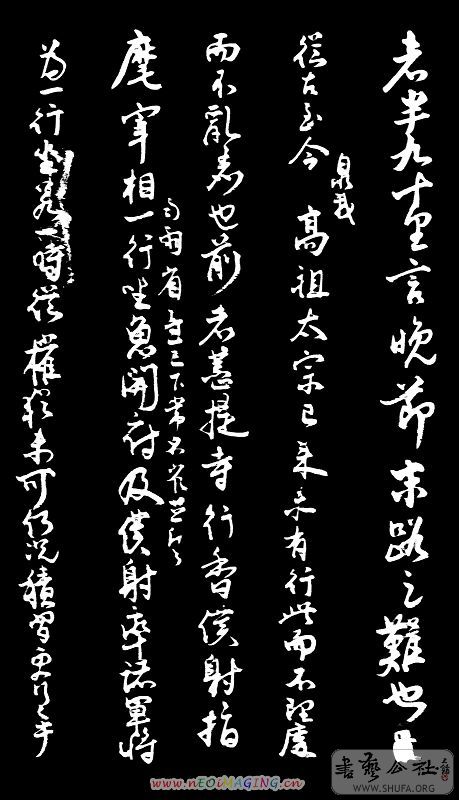 者半九十里言晚節末路之難也
臮我
從古至今高祖太宗已來未有行此而不理廢
而不亂者也前者菩提寺行香僕射指
與兩省臺已下常參官並為
麾宰相一行坐魚開府及僕射率諸軍將
為一行坐若一時從權猶未可何況積習更行之乎
書藝公社
WWW.SHUFA.ORG
www.nEOiMAGING.cn